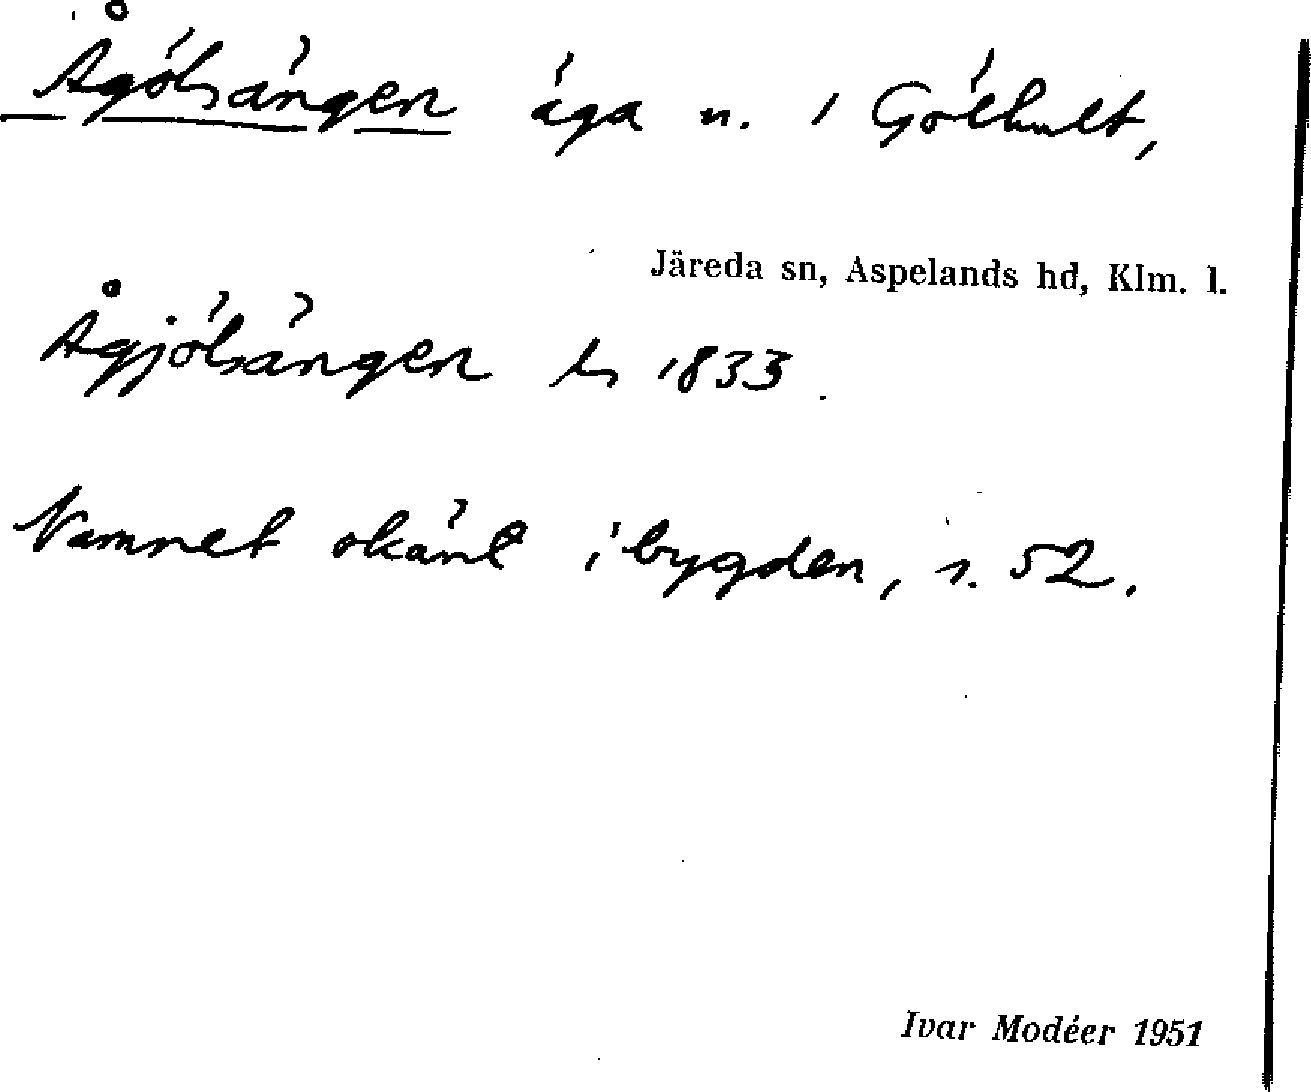 Ågölsängen äga n. i Gölhult,
Järeda sn, Aspelands hd, Klm. l.
Ågjölsängen ls 1833.
Namnet okänt i bygden, s. 52.
Ivar Modéer 1951